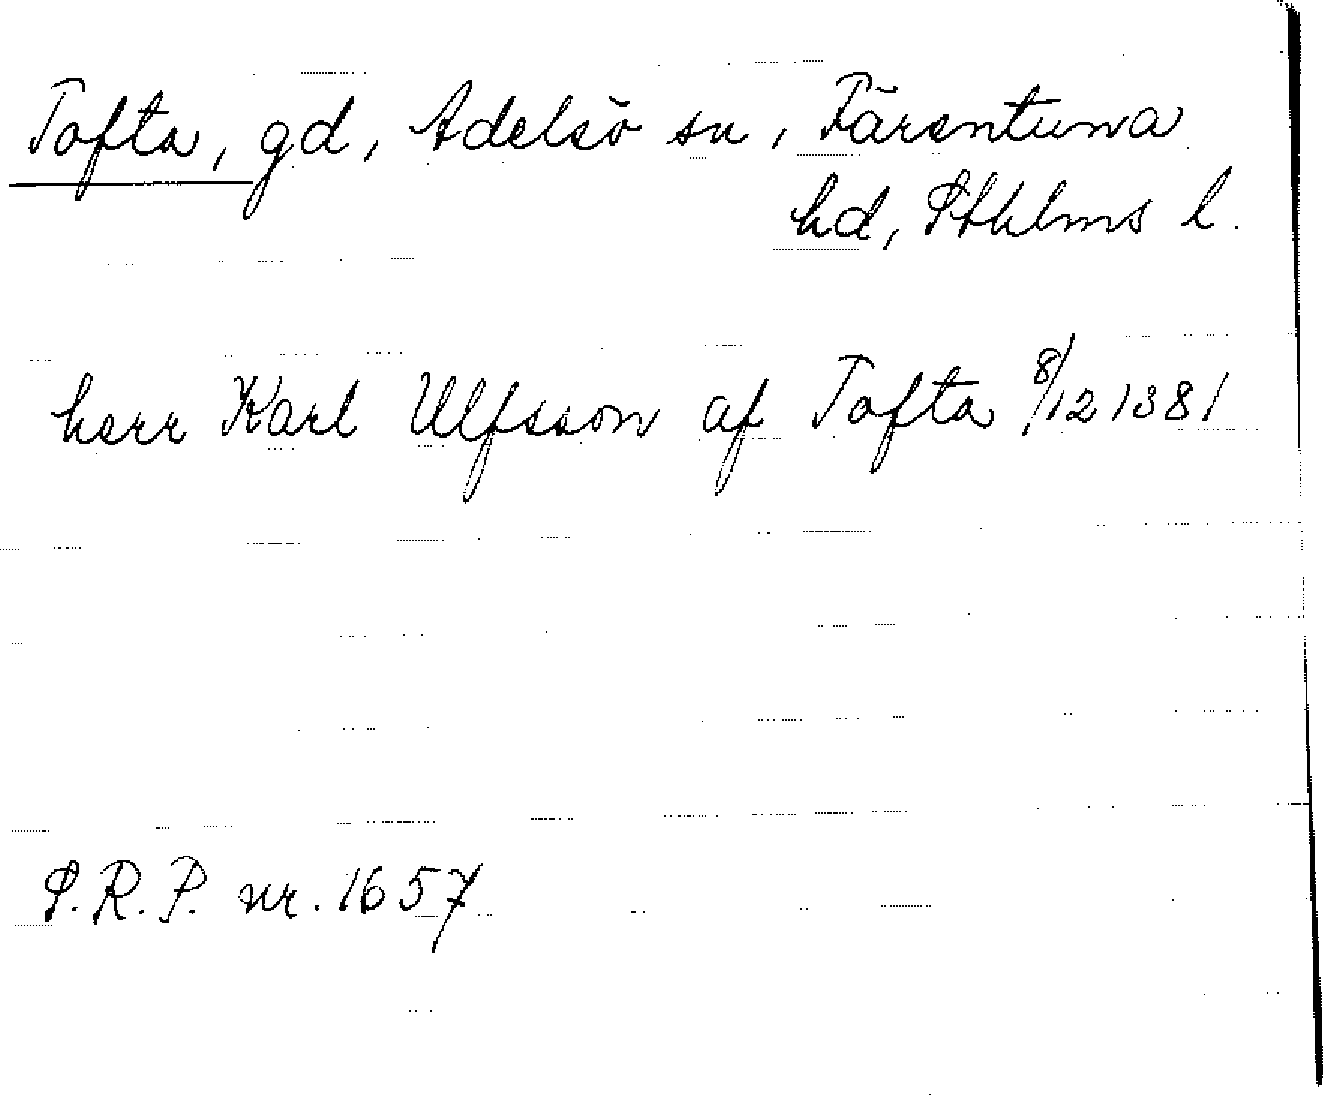 Tofta, gd, Adelsö sn, Färentuna
hd, Sthlms l.
herr Karl Ulfsson af Tofta 8/12 1381
S.R.P. nr. 1657